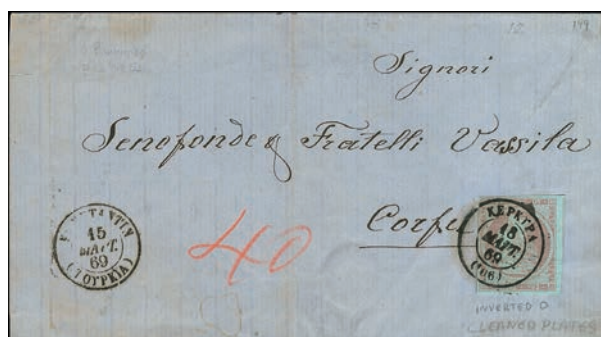 199
Signori
Senofonde & Fratelli Vassila
Corfu
ΚΩΝΣΤΑΝΤΙΝ
15
ΜΑΡΤ.
69
(ΤΟΥΡΚΙΑ)
40
ΚΕΡΚΥΡΑ
18
ΜΑΡΤ.
69
(106)
INVERTED 0
CLEANED PLATES